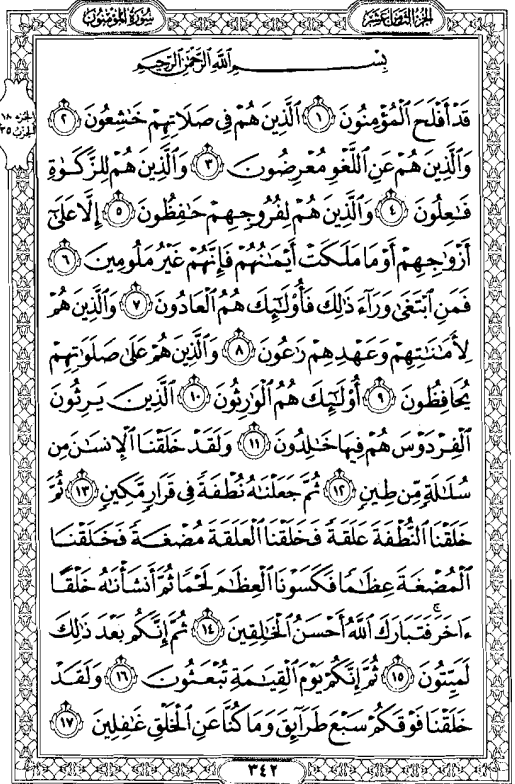 سُورَةُ المُؤْمِنُونَ
الجُزْءُ الثَّامِنَ عَشَرَ
بِسْمِ ٱللَّهِ ٱلرَّحْمَٰنِ ٱلرَّحِيمِ
الجزء ١٨
الحزب ٣٥
قَدْ أَفْلَحَ ٱلْمُؤْمِنُونَ ١ ٱلَّذِينَ هُمْ فِى صَلَاتِهِمْ خَٰشِعُونَ ٢
وَٱلَّذِينَ هُمْ عَنِ ٱللَّغْوِ مُعْرِضُونَ ٣ وَٱلَّذِينَ هُمْ لِلزَّكَوٰةِ
فَٰعِلُونَ ٤ وَٱلَّذِينَ هُمْ لِفُرُوجِهِمْ حَٰفِظُونَ ٥ إِلَّا عَلَىٰٓ
أَزْوَٰجِهِمْ أَوْ مَا مَلَكَتْ أَيْمَٰنُهُمْ فَإِنَّهُمْ غَيْرُ مَلُومِينَ ٦
فَمَنِ ٱبْتَغَىٰ وَرَآءَ ذَٰلِكَ فَأُو۟لَٰٓئِكَ هُمُ ٱلْعَادُونَ ٧ وَٱلَّذِينَ هُمْ
لِأَمَٰنَٰتِهِمْ وَعَهْدِهِمْ رَٰعُونَ ٨ وَٱلَّذِينَ هُمْ عَلَىٰ صَلَوَٰتِهِمْ
يُحَافِظُونَ ٩ أُو۟لَٰٓئِكَ هُمُ ٱلْوَٰرِثُونَ ١٠ ٱلَّذِينَ يَرِثُونَ
ٱلْفِرْدَوْسَ هُمْ فِيهَا خَٰلِدُونَ ١١ وَلَقَدْ خَلَقْنَا ٱلْإِنسَٰنَ مِن
سُلَٰلَةٍ مِّن طِينٍ ١٢ ثُمَّ جَعَلْنَٰهُ نُطْفَةً فِى قَرَارٍ مَّكِينٍ ١٣ ثُمَّ
خَلَقْنَا ٱلنُّطْفَةَ عَلَقَةً فَخَلَقْنَا ٱلْعَلَقَةَ مُضْغَةً فَخَلَقْنَا
ٱلْمُضْغَةَ عِظَٰمًا فَكَسَوْنَا ٱلْعِظَٰمَ لَحْمًا ثُمَّ أَنشَأْنَٰهُ خَلْقًا
ءَاخَرَ ۚ فَتَبَارَكَ ٱللَّهُ أَحْسَنُ ٱلْخَٰلِقِينَ ١٤ ثُمَّ إِنَّكُم بَعْدَ ذَٰلِكَ
لَمَيِّتُونَ ١٥ ثُمَّ إِنَّكُمْ يَوْمَ ٱلْقِيَٰمَةِ تُبْعَثُونَ ١٦ وَلَقَدْ
خَلَقْنَا فَوْقَكُمْ سَبْعَ طَرَآئِقَ وَمَا كُنَّا عَنِ ٱلْخَلْقِ غَٰفِلِينَ ١٧
٣٤٢